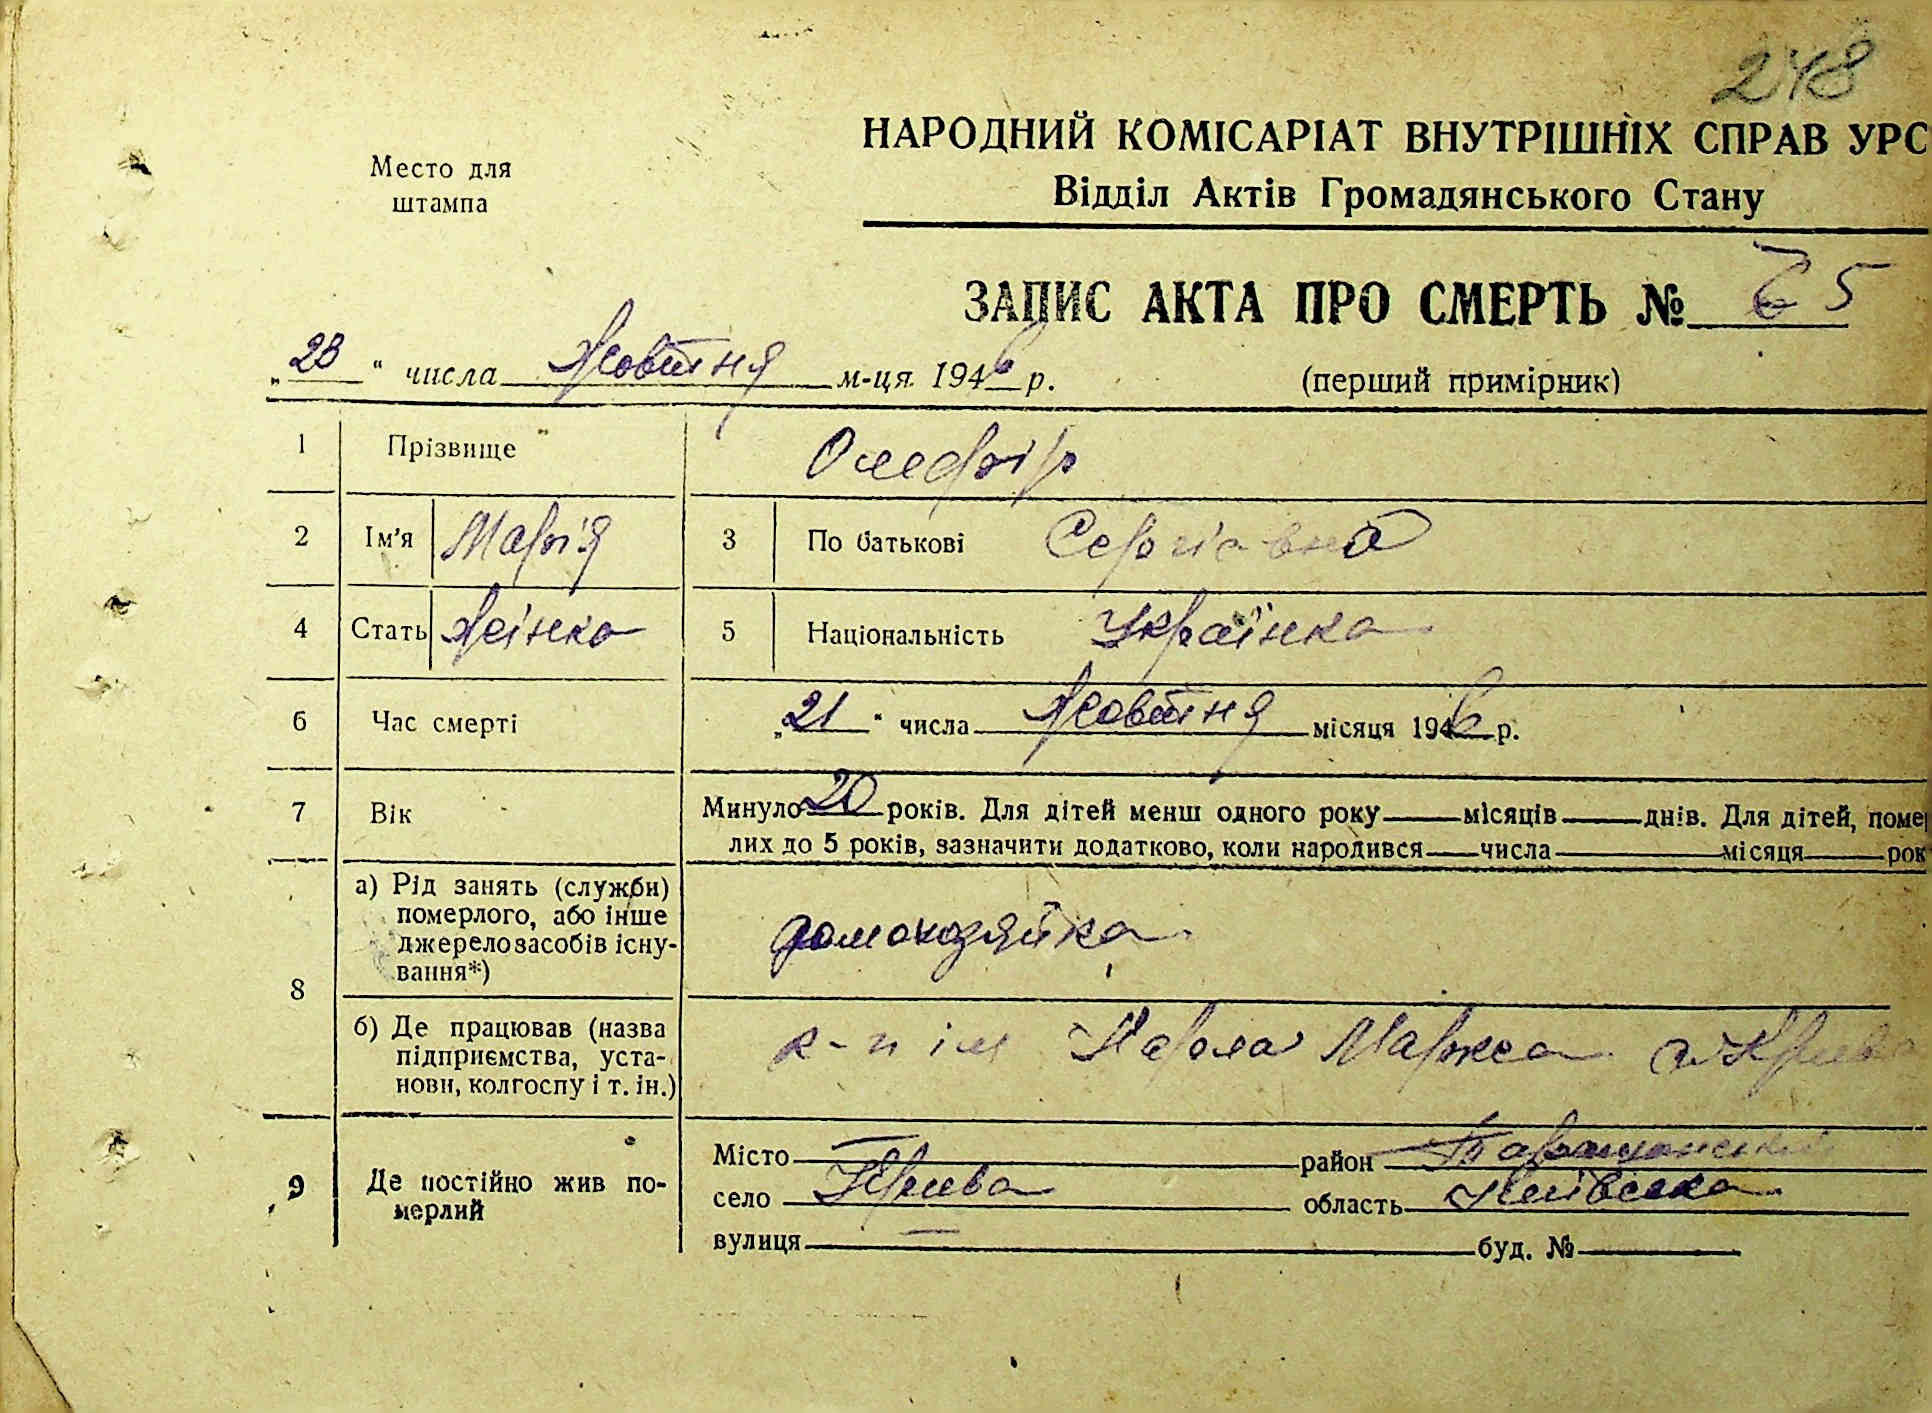 248
НАРОДНИЙ КОМІСАРІАТ ВНУТРІШНІХ СПРАВ УРС
Відділ Актів Громадянського Стану
Место для
штампа
ЗАПИС АКТА ПРО СМЕРТЬ № 65
„23“ числа Жовтня м-ця 1946 р.
(перший примірник)
1 Прізвище Олефір
2 Ім’я Марія 3 По батькові Сергіевна
4 Стать Жінка 5 Національність Українка
6 Час смерті „21“ числа Жовтня місяця 1946 р.
7 Вік Минуло 20 років. Для дітей менш одного року — місяців — днів. Для дітей, поме
лих до 5 років, зазначити додатково, коли народився — числа — місяця — рок
8 а) Рід занять (служби)
померлого, або інше
джерело засобів існу-
вання*)
домохозяйка
б) Де працював (назва
підприємства, уста-
нови, колгоспу і т. ін.)
к-п ім Карла Маркса с Крива
9 Де постійно жив по-
мерлий
Місто — район Таращанський
село Крива область Київська
вулиця — буд. №